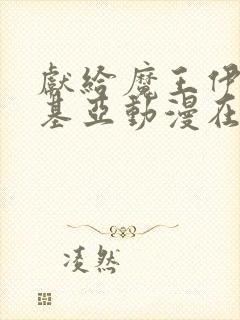 獻給魔王伊
基亞動漫在
凌然